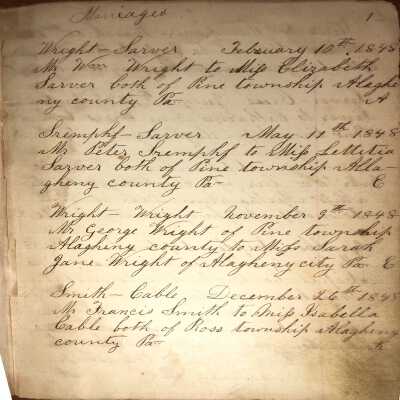 Marriages 1
Wright - Sarver February 10th, 1848
Mr Wm Wright to Miss Elizabeth
Sarver both of Pine township Alaghe
ny county Pa A
Sremphf - Sarver May 11th 1848
Mr Peter Sremphf to Miss Lettetia
Sarver both of Pine township Alla-
gheny county Pa- C
Wright - Wright November 9th 1848
Mr George Wright of Pine township
Alagheny county to Miss Sarah
Jane Wright of Alagheny city Pa C
Smith - Cable December 26th 1848
Mr Francis Smith to Miss Isabella
Cable both of Ross township Alagheny
county Pa-